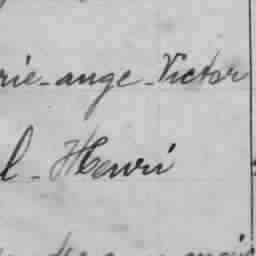 rie-ange-Victor
l-Henri